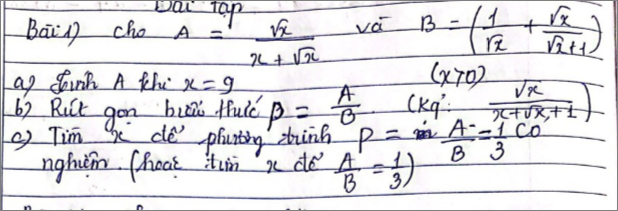 Bài tập
Bài 1) cho A = √x / (x + √x) và B = (1/√x + √x/(√x+1))
(x>0)
a) Tính A khi x = 9
b) Rút gọn biểu thức P = A/B (Kq: √x/(x+√x+1))
c) Tìm x để phương trình P = A/B = 1/3 có
nghiệm. (hoặc tìm x để A/B = 1/3)